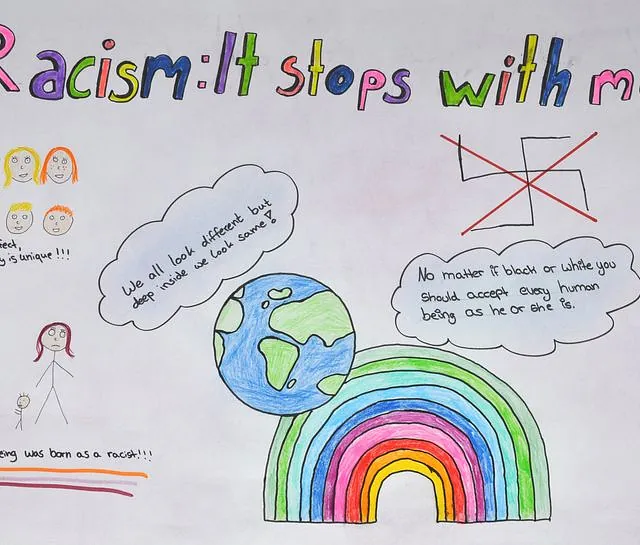 Racism: It stops with m
We all look different but
deep inside we look same!
No matter if black or white you
should accept every human
being as he or she is.
fect,
y is unique!!!
eing was born as a racist!!!